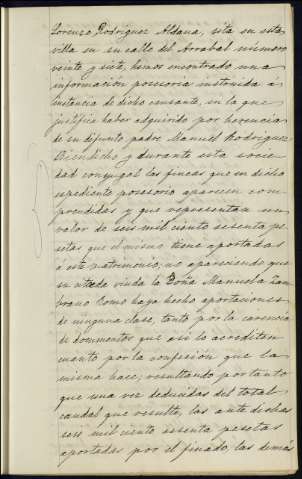 Lorenzo Rodriguez Aldana, sita en esta
villa en su calle del Arrabal número
veinte y siete, hemos encontrado una
información posesoria instruida á
instancia de dicho causante, en la que
justifica haber adquirido por herencia
de su difunto padre Manuel Rodriguez
y durante esta socie
dad conyugal las fincas que en dicho
espediente posesorio aparecen com
prendidas y que representan un
valor de seis mil ciento sesenta pe
setas que el mismo tiene aportadas
á este patrimonio; no apareciendo que
su viuda la Doña Manuela Zam
brano Romo haya hecho aportaciones
de ninguna clase, tanto por la carencia
de documentos que asi lo acrediten
cuanto por la confesión que la
misma hace; resultando por tanto
que una vez deducidas del total
caudal que resulta, las ante dichas
seis mil ciento sesenta pesetas
aportadas por el finado, las demás